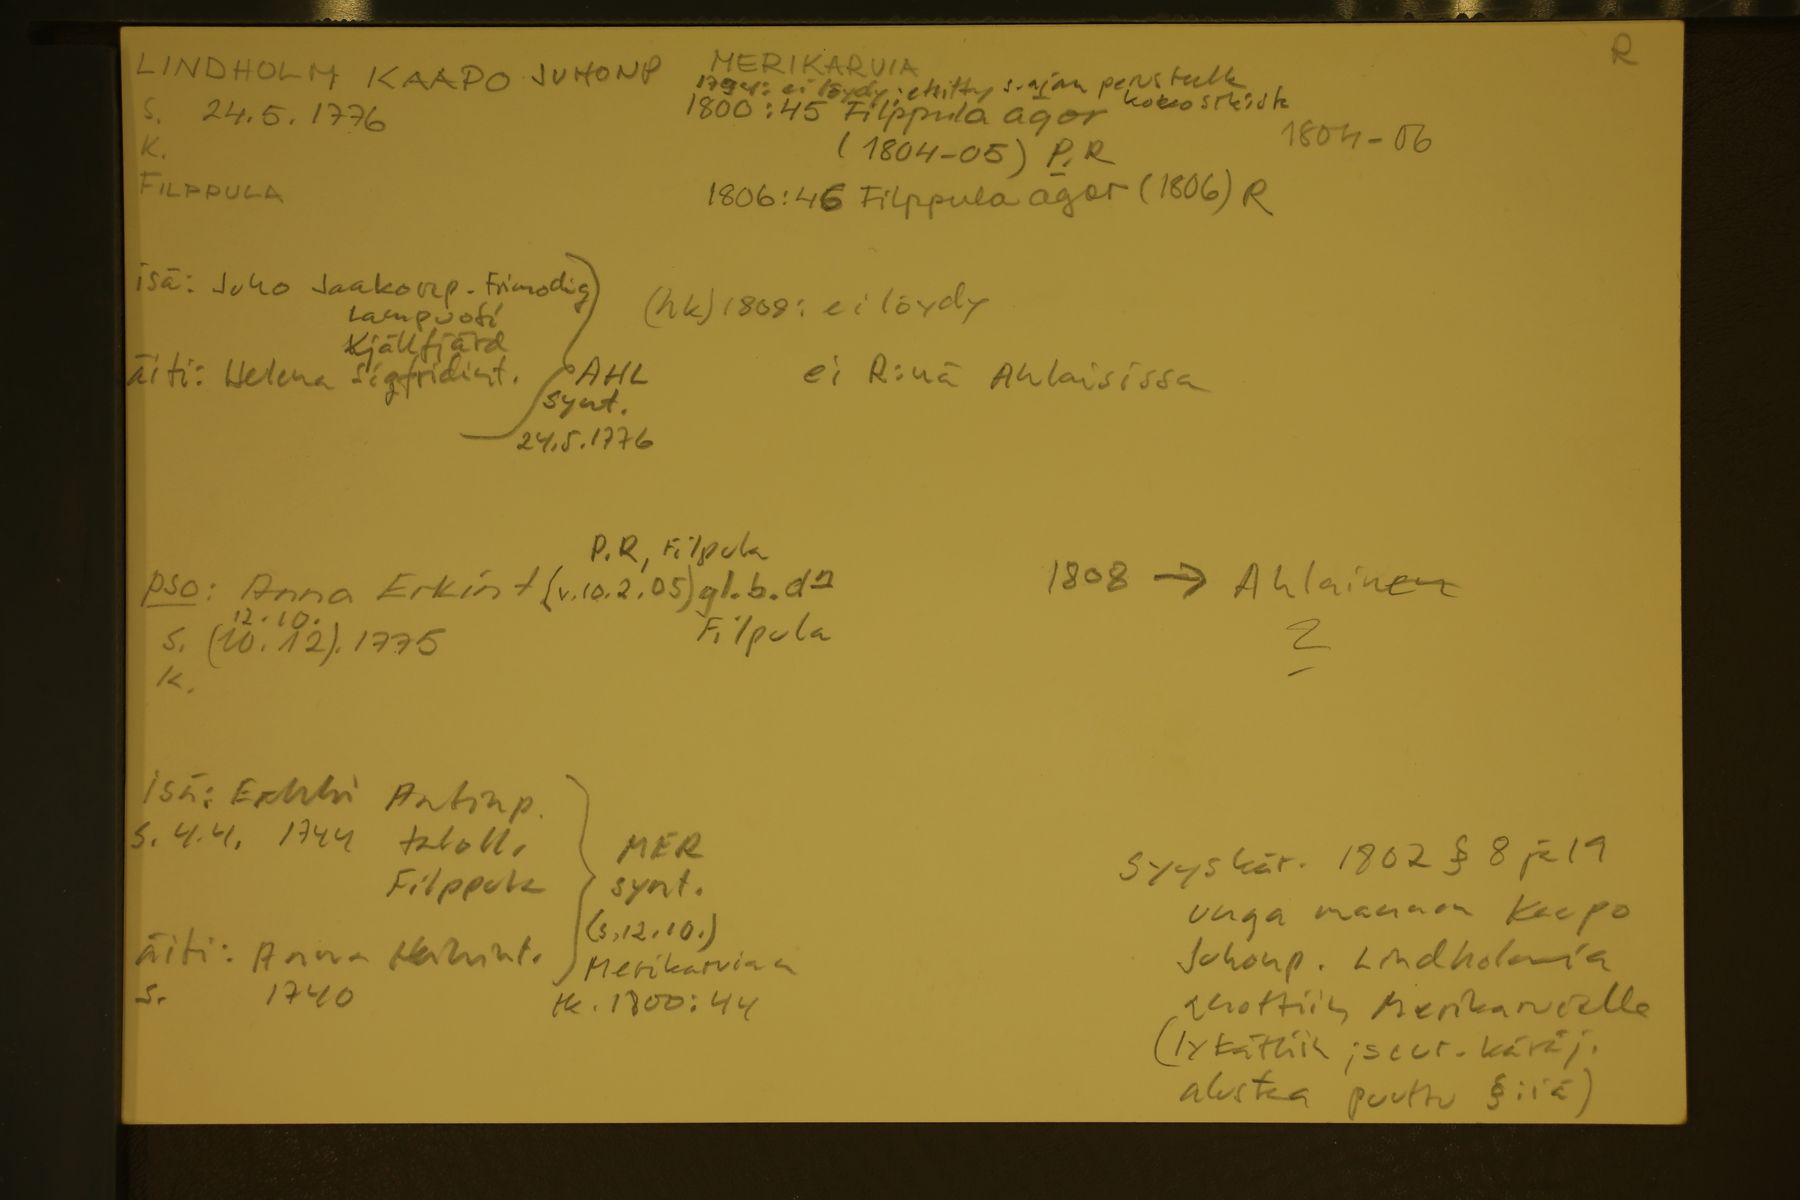 LINDHOLM KAAPO JUHONP
S. 24.5.1776
K.
FILPPULA
MERIKARVIA
1794: ei löydy; etsitty s-ajan perusteella
koko srk:sta
1800:45 Filppula ägor
(1804-05) P.R
1806:46 Filppula ägor (1806) R
1804-06
R
isä: Juho Jaakonp. Frimodig
Lampuoti
Kjällfjärd
äiti: Helena Sigfridint.
AHL
synt.
24.5.1776
(hk) 1808: ei löydy
ei R:nä Ahlaisissa
P.R, Filpula
pso: Anna Erkint (v.10.2.05) gl.b.dr
Filpula
12.10.
s. (10.12).1775
k.
1808 → Ahlainen
?
isä: Erkki Antinp.
s. 4.4. 1744 taloll.
Filppula
äiti: Anna
s. 1740
MER
synt.
(s.12.10.)
Merikarvian
rk. 1800:44
Syyskär. 1802 § 8 ja 19
unga mannen Kaapo
Juhonp. Lindholmia
Merikarvialle
(lykättiin; seur. käräj.
alusta puuttu §:iä)